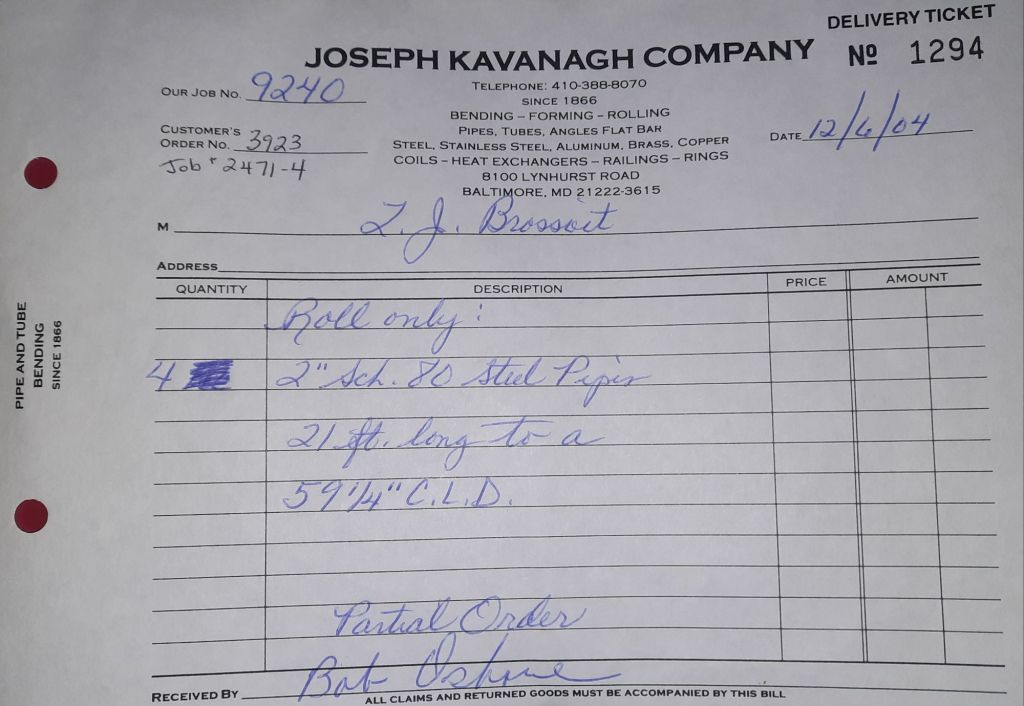 DELIVERY TICKET
JOSEPH KAVANAGH COMPANY
Nº 1294
TELEPHONE: 410-388-8070
SINCE 1866
OUR JOB NO. 9240
BENDING – FORMING – ROLLING
PIPES, TUBES, ANGLES FLAT BAR
CUSTOMER'S
ORDER NO. 3923
STEEL, STAINLESS STEEL, ALUMINUM, BRASS, COPPER
DATE 12/6/04
Job # 2471-4
COILS – HEAT EXCHANGERS – RAILINGS – RINGS
8100 LYNHURST ROAD
BALTIMORE, MD 21222-3615
M L.J. Brossoit
ADDRESS
QUANTITY DESCRIPTION PRICE AMOUNT
Roll only:
4 2" Sch. 80 Steel Pipes
21 ft. long to a
59 1/4" C.L.D.
Partial Order
RECEIVED BY Bob
ALL CLAIMS AND RETURNED GOODS MUST BE ACCOMPANIED BY THIS BILL
PIPE AND TUBE
BENDING
SINCE 1866